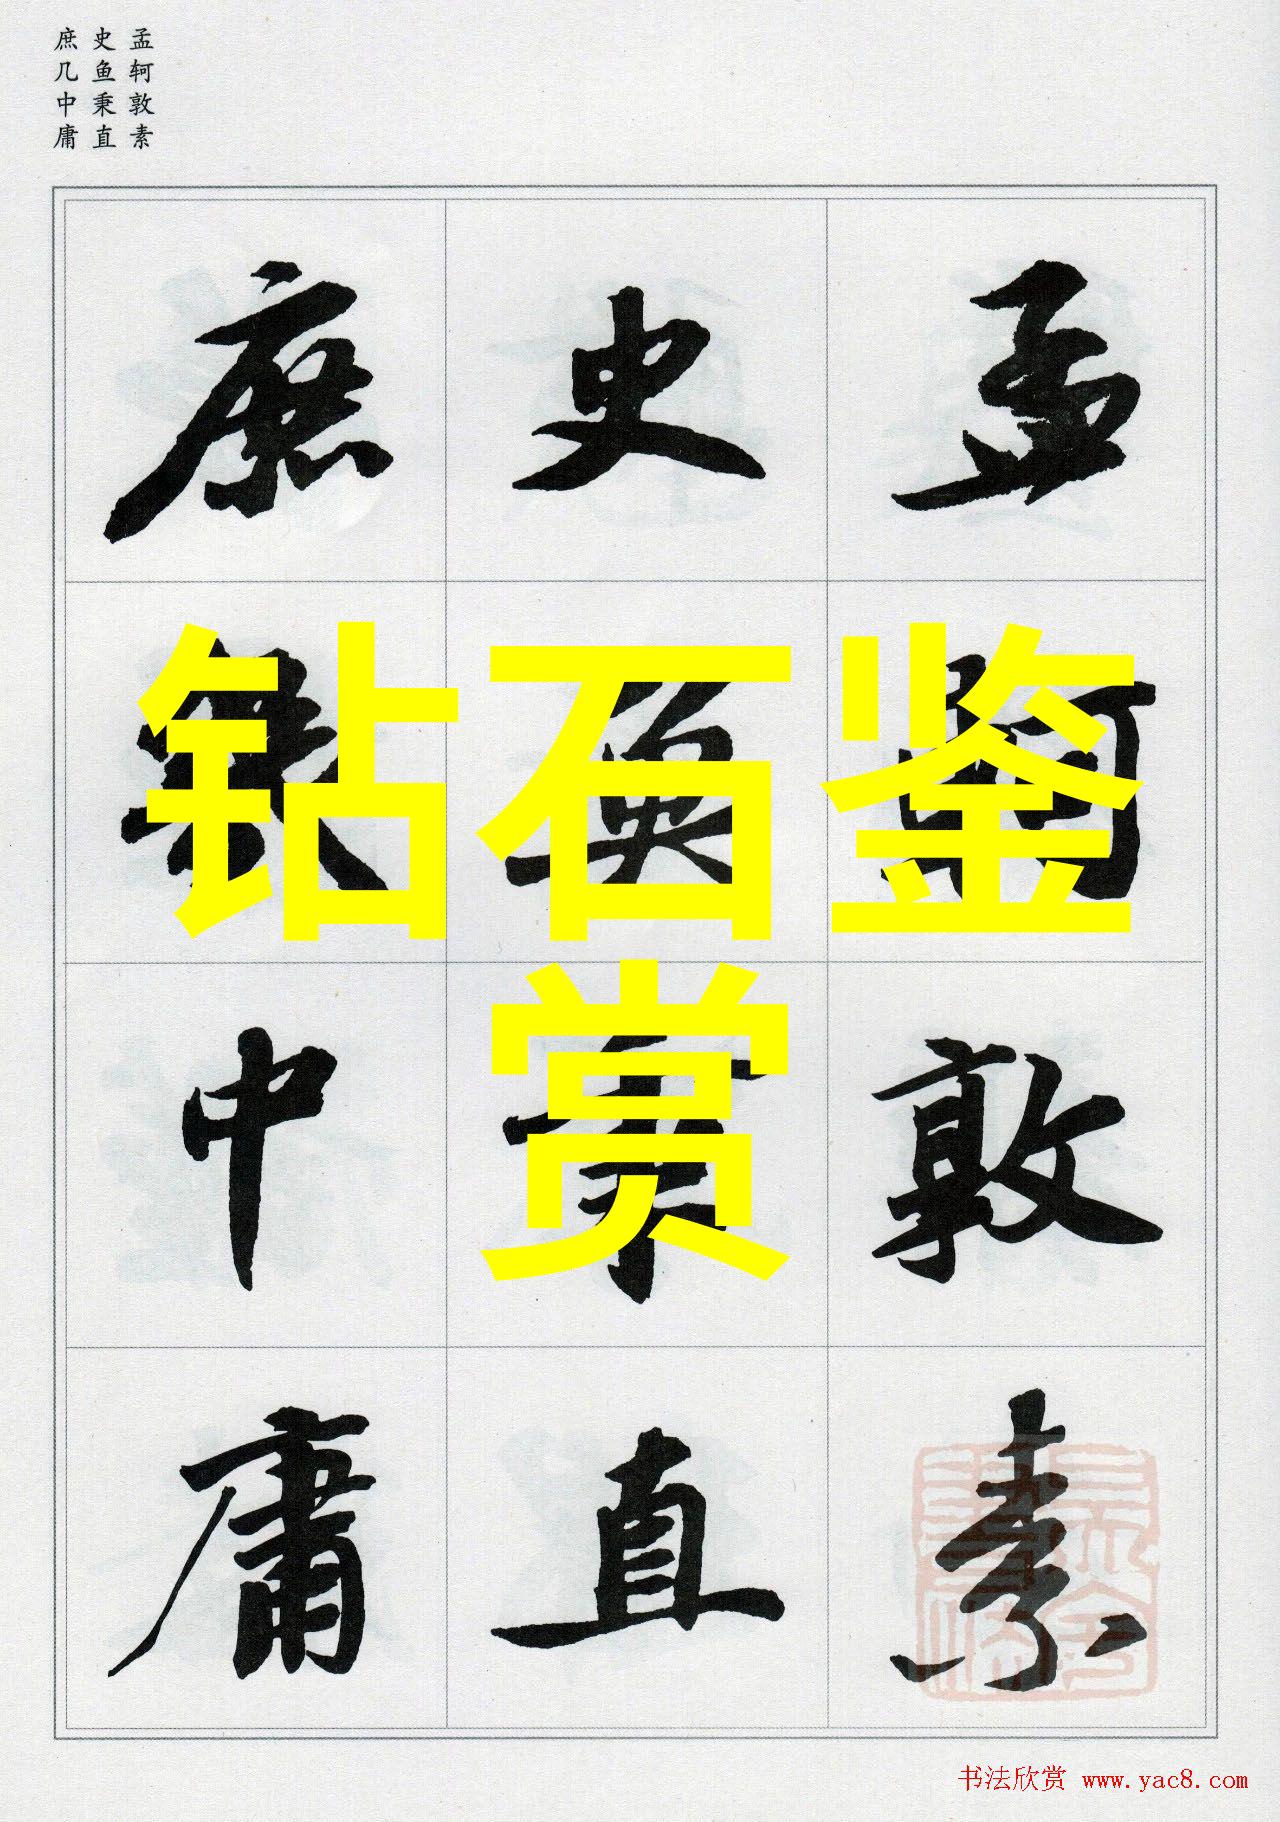 孟轲敦素
史鱼秉直
庶几中庸
孟軻敦素
史魚秉直
庶幾中庸
钻石鉴
赏
书法欣赏 www.yac8.com